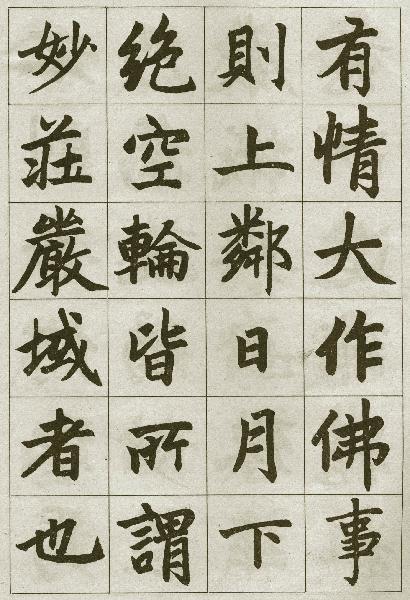 有情大作佛事
則上鄰日月下
絶空輪皆所謂
妙莊嚴域者也